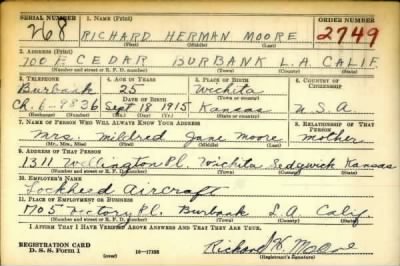 SERIAL NUMBER 1. NAME (Print) ORDER NUMBER
268 RICHARD HERMAN MOORE 2749
(First) (Middle) (Last)
2. ADDRESS (Print)
700 E CEDAR BURBANK L.A. CALIF.
(Number and street or R. F. D. number) (Town) (County) (State)
3. TELEPHONE 4. AGE IN YEARS 5. PLACE OF BIRTH 6. COUNTRY OF CITIZENSHIP
Burbank 25 Wichita
DATE OF BIRTH (Town or county)
Ch. 6-9836 Sept 18 1915 Kansas U.S.A.
(Exchange) (Number) (Mo.) (Day) (Yr.) (State or country)
7. NAME OF PERSON WHO WILL ALWAYS KNOW YOUR ADDRESS 8. RELATIONSHIP OF THAT PERSON
Mrs. Mildred Jane Moore Mother
(Mr., Mrs., Miss) (First) (Middle) (Last)
9. ADDRESS OF THAT PERSON
1311 Wellington Pl. Wichita Sedgwick Kansas
(Number and street or R. F. D. number) (Town) (County) (State)
10. EMPLOYER'S NAME
Lockheed Aircraft
11. PLACE OF EMPLOYMENT OR BUSINESS
1705 Victory Pl. Burbank L.A. Calif.
(Number and street or R. F. D. number) (Town) (County) (State)
I AFFIRM THAT I HAVE VERIFIED ABOVE ANSWERS AND THAT THEY ARE TRUE.
REGISTRATION CARD
D. S. S. Form 1 (over) 16-17105 Richard H. Moore
(Registrant's signature)